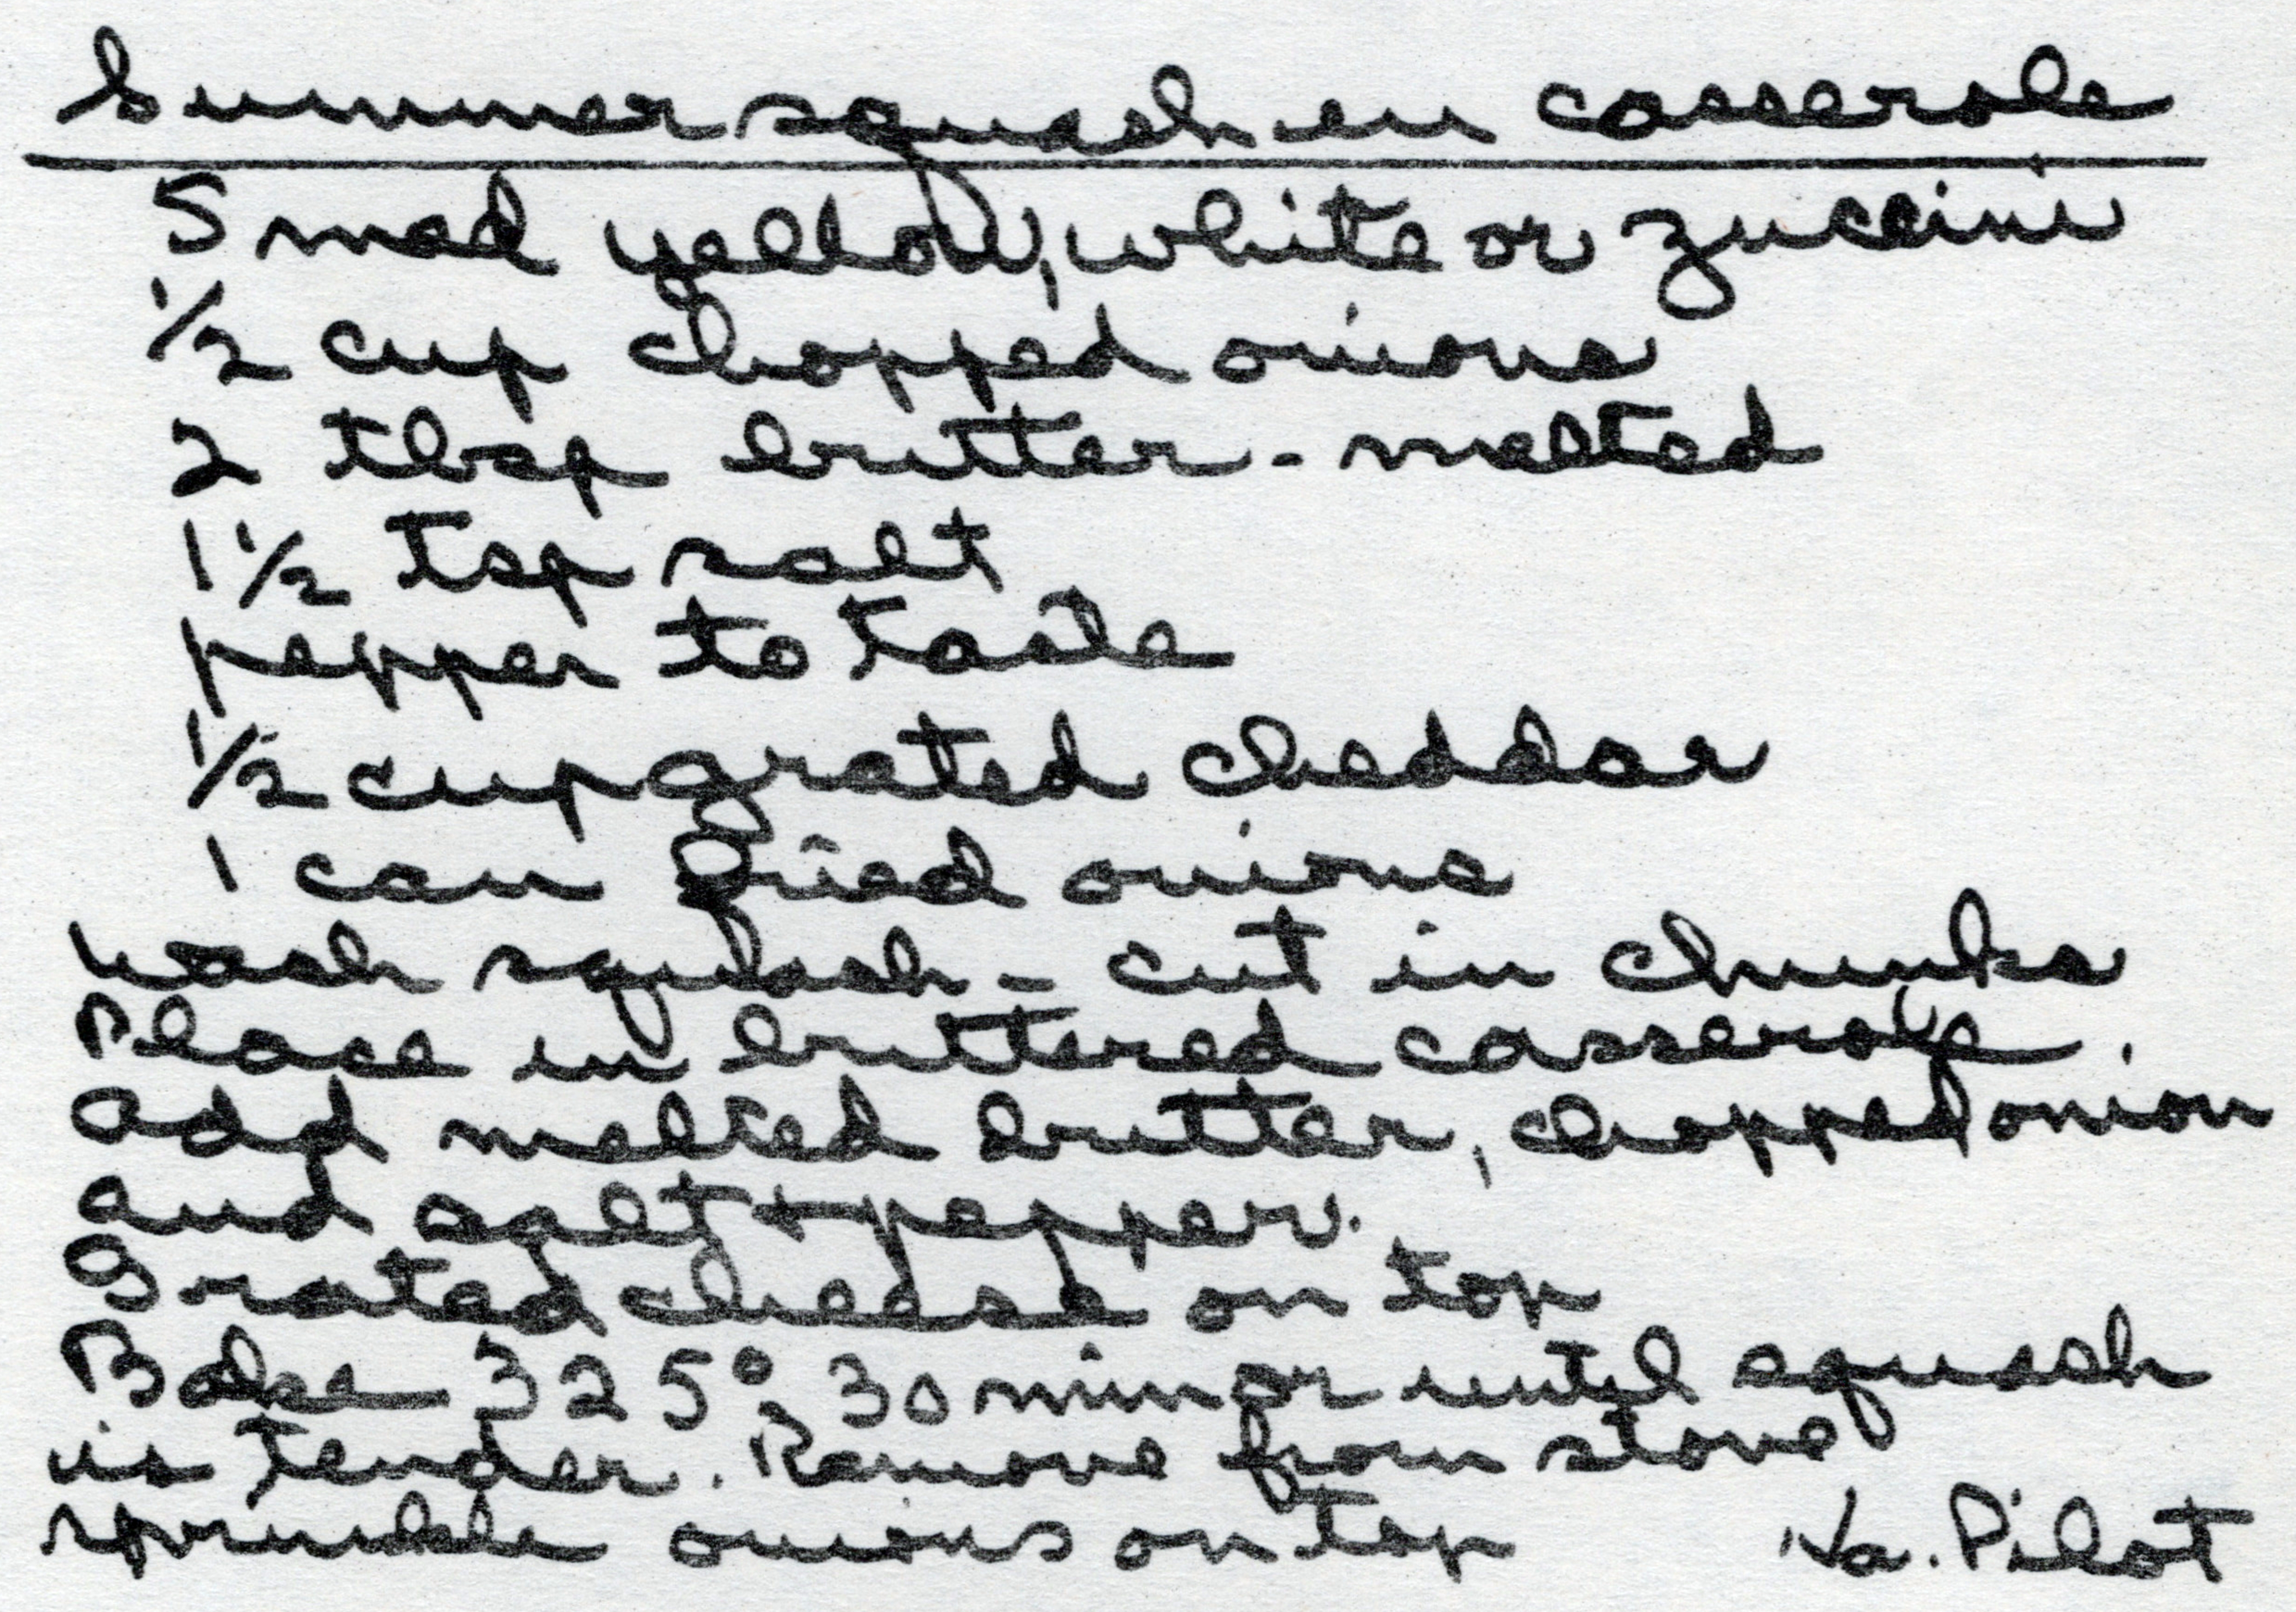 Summer squash en casserole
5 med yellow, white or zuccini
1/2 cup chopped onions
2 tbsp butter - melted
1 1/2 tsp salt
pepper to taste
1/2 cup grated cheddar
1 can fried onions
Wash squash - cut in chunks
Place in buttered casserole.
Add melted butter, chopped onion
and salt + pepper.
Grated cheese on top
Bake 325° 30 min or until squash
is tender. Remove from stove
sprinkle onions on top
Va. Pilot